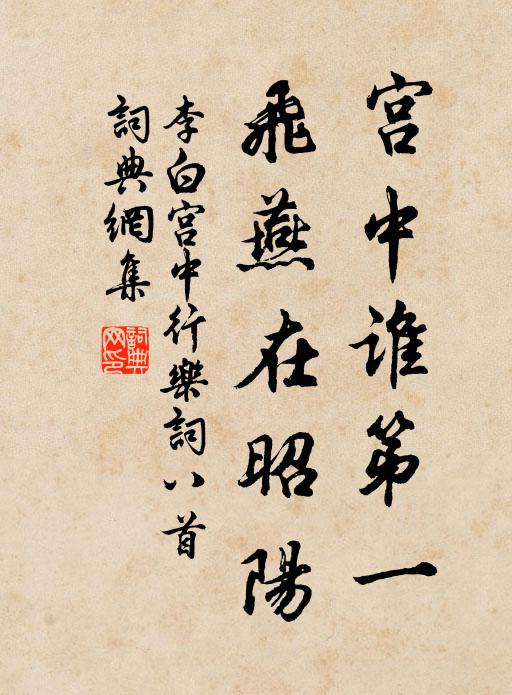 宫中誰第一
飛燕在昭陽
李白宫中行樂詞八首
詞典網集
詞典网印